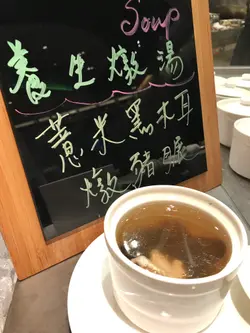 Soup
養生燉湯
薏米黑木耳
燉豬𦟌